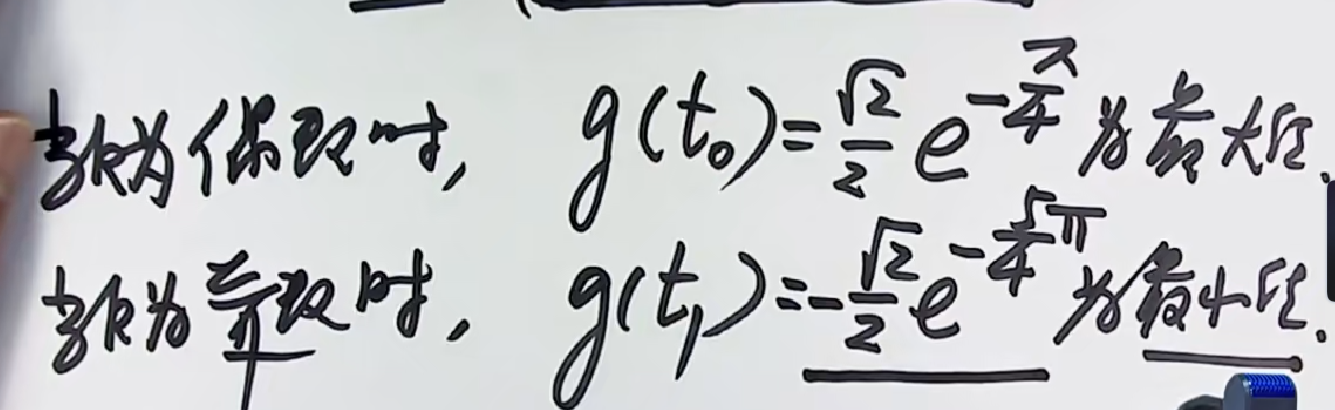 当k为偶数时, g(t₀)=√2/2 e^{-π/4} 为最大值.
当k为奇数时, g(t₁)=-√2/2 e^{-5/4 π} 为最小值.